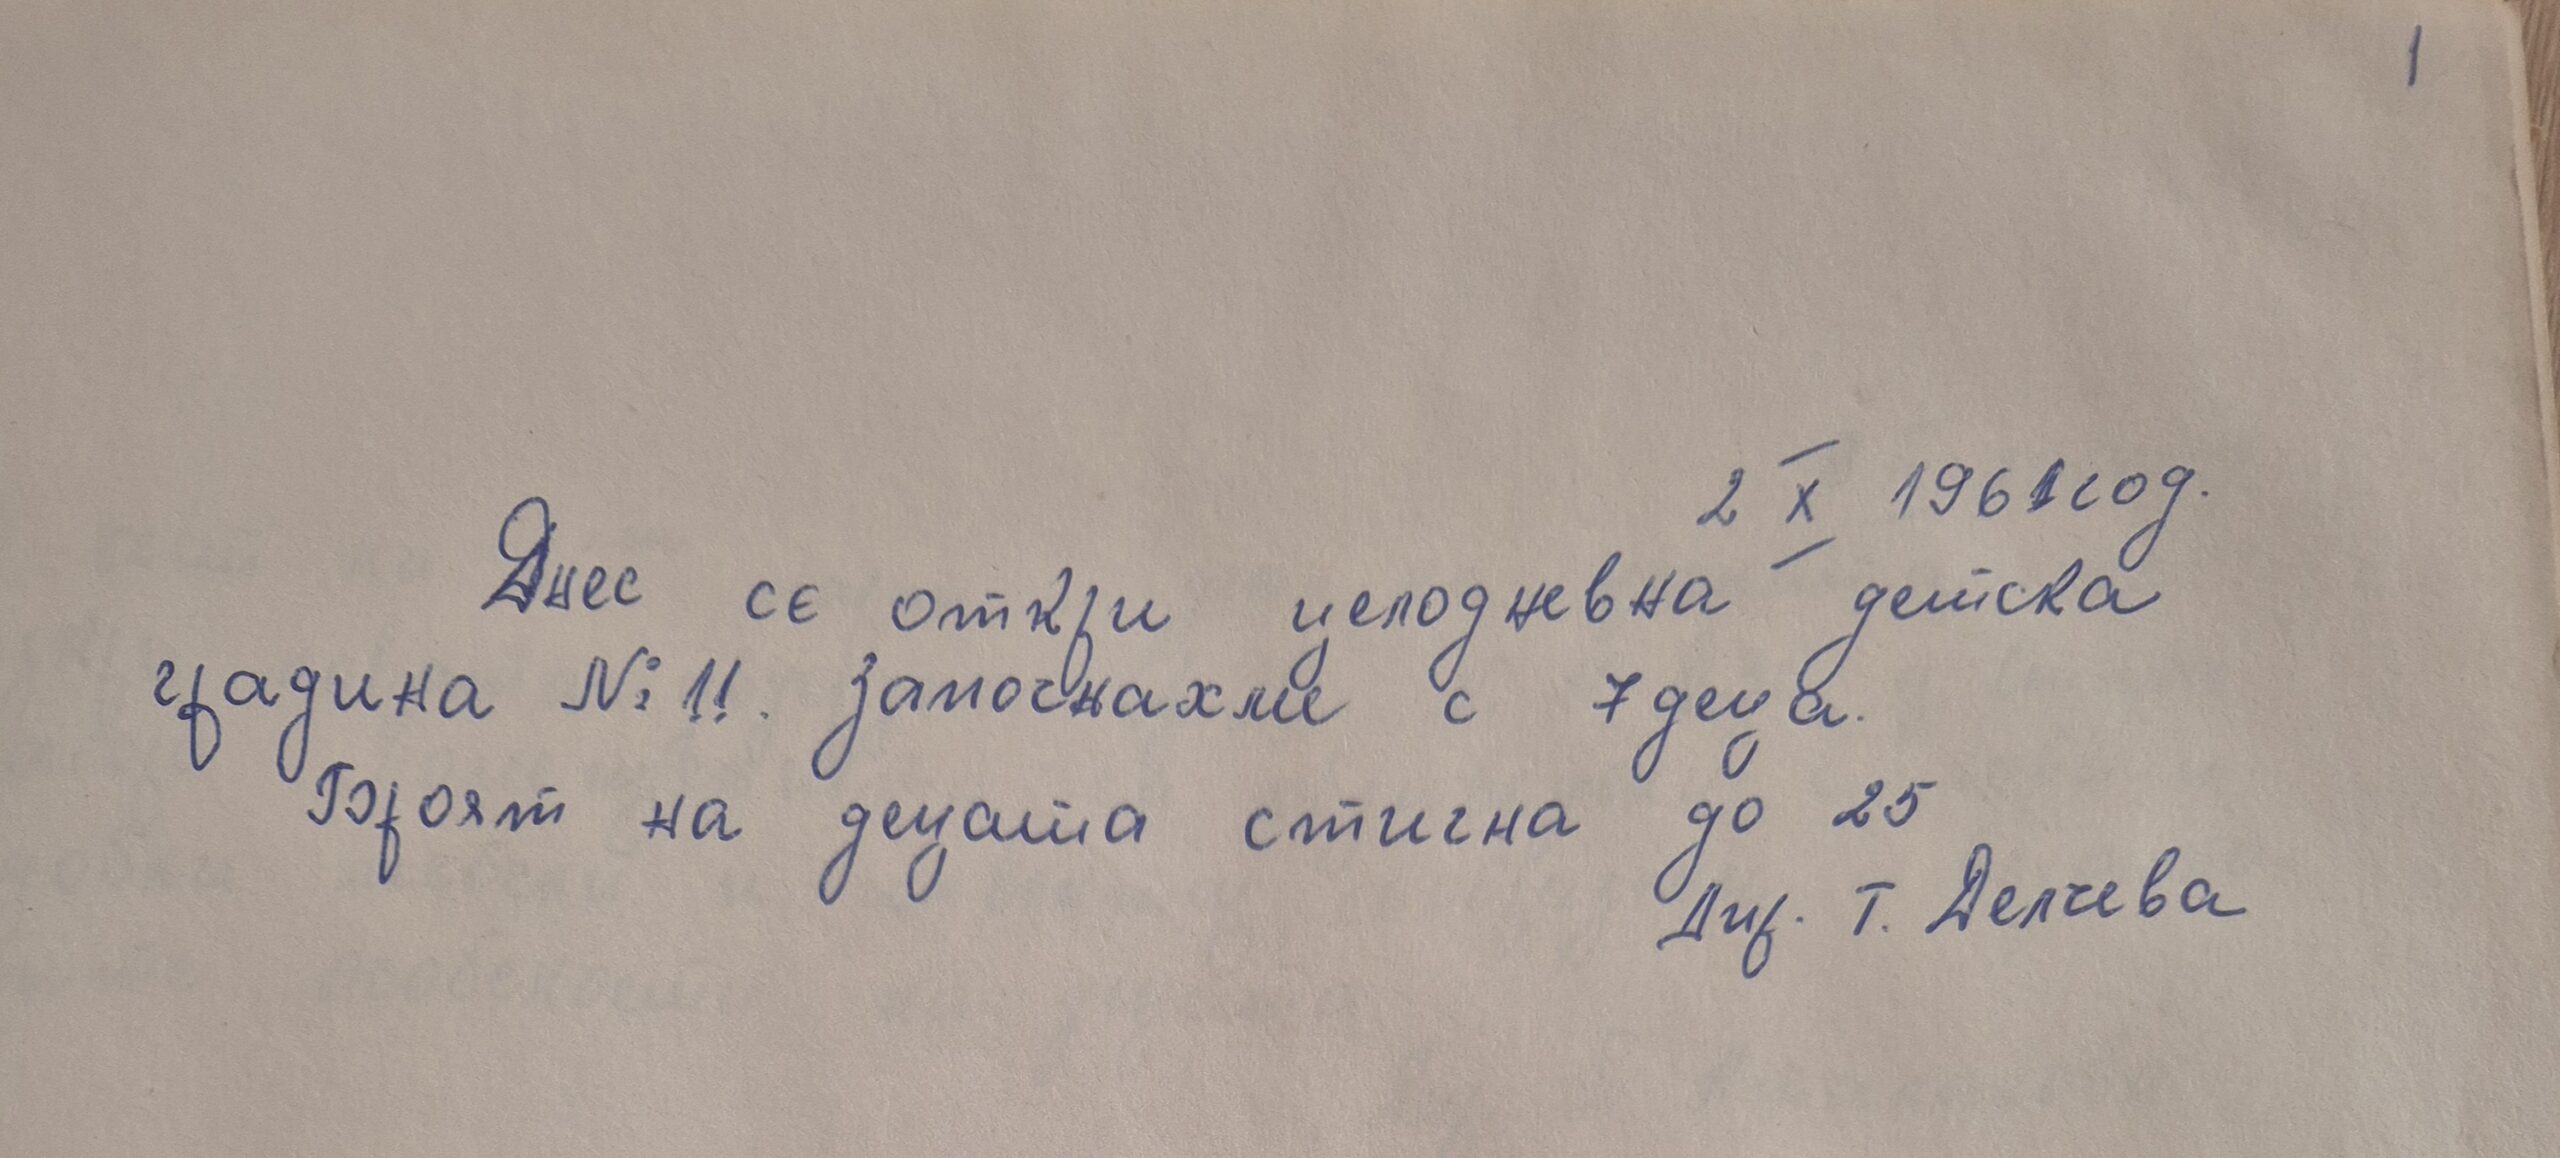 1
2 X 1961 год.
Днес се откри целодневна детска
градина № 11. Започнахме с 7 деца.
Броят на децата стигна до 25
Дир. Т. Делчева